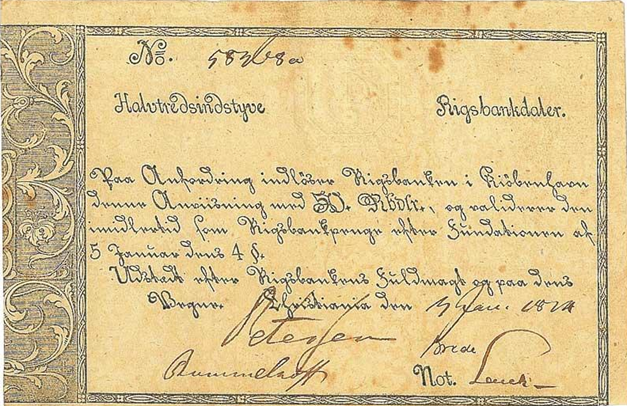 No.
Halvtredsindstyve Rigsbankdaler.
Paa Anfordring indlöser Rigsbanken i Kiöbenhavn
denne Anviisning med 50. Rbdlr., og validerer den
imidlertid som Rigsbankpenge efter Fundationen af
5 Januar dens 4 §.
Udstedt efter Rigsbankens Fuldmagt og paa dens
Vegne. Christiania den
Petersen
Not.